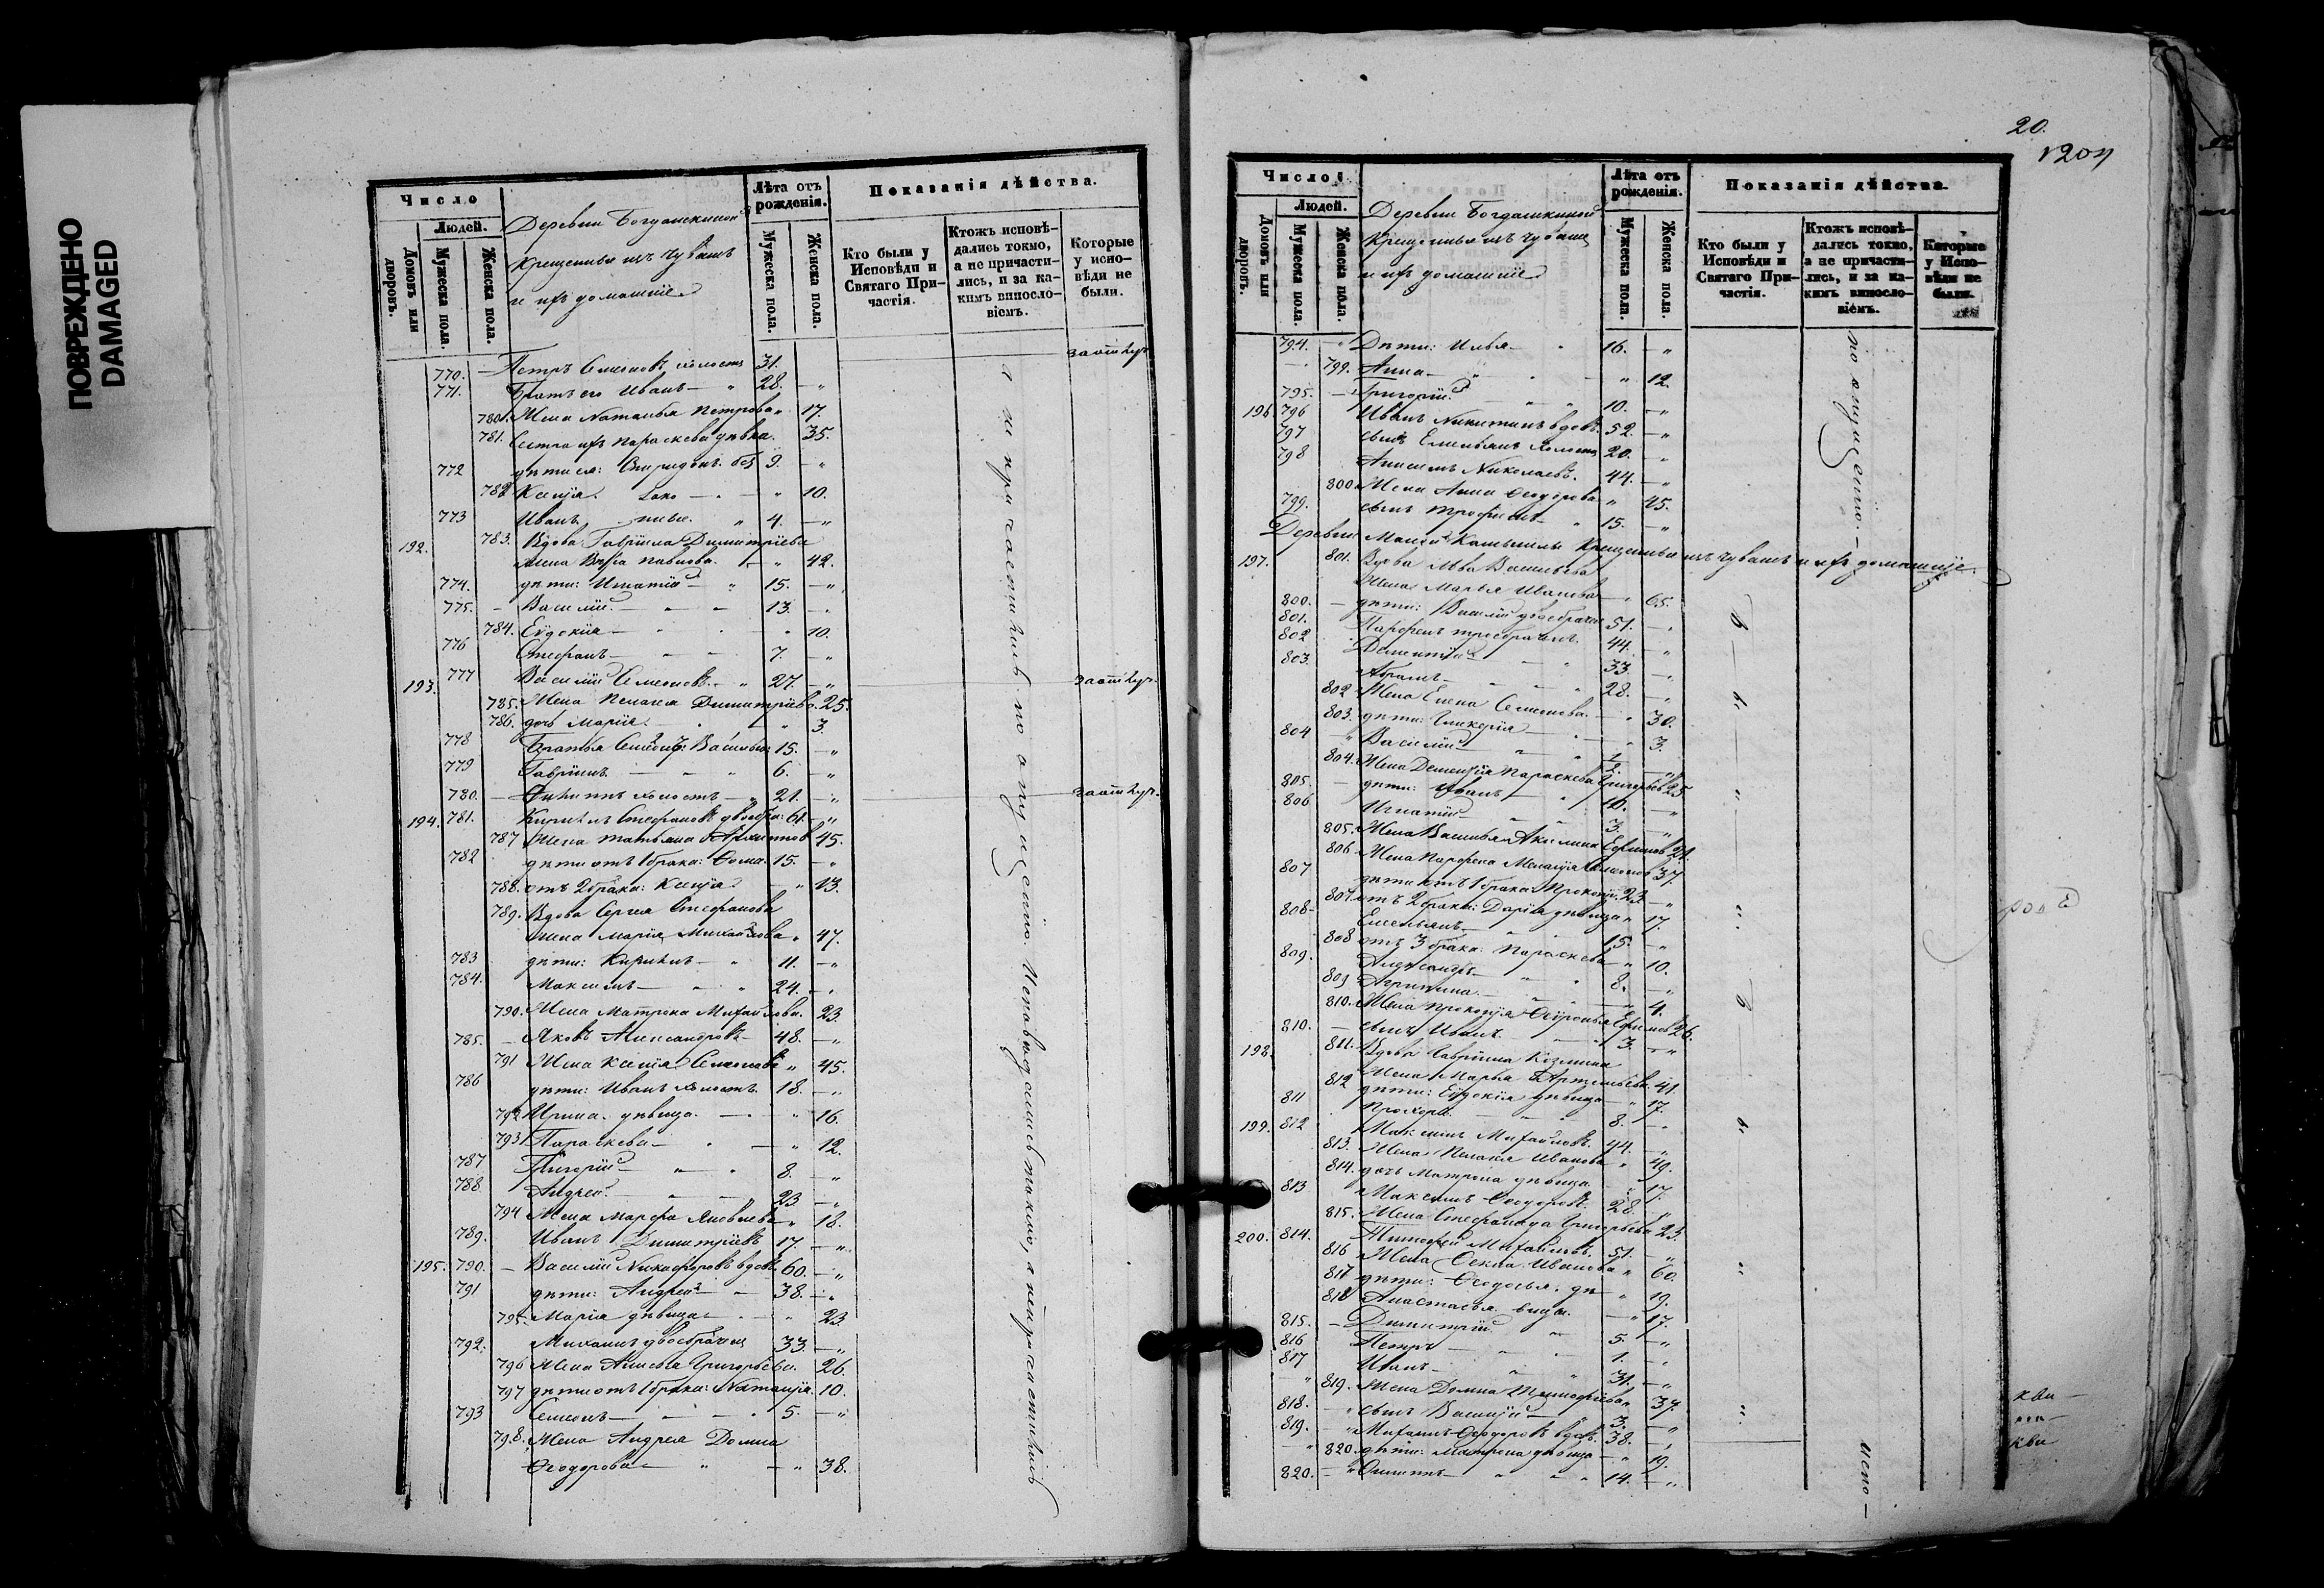 ПОВРЕЖДЕНО
DAMAGED
Число
Людей.
Домовъ или дворовъ.
Мужеска пола.
Женска пола.
Деревни Богдашкиной
Крещеные изъ Чувашъ
и ихъ домашніе
Лѣта отъ рожденія.
Мужеска пола.
Женска пола.
Показанія дѣйства.
Кто были у Исповѣди и Святаго Причастія.
Ктожъ исповѣдались токмо, а не причастились, и за какимъ винословіемъ.
Которые у исповѣди не были.
770. Петръ Семеновъ холостъ 31.
771. Братъ его Иванъ 28.
780. Жена Наталья Петрова 17.
781. Сестра ихъ Параскева дѣвка. 35.
772 дѣти ея: Спиридонъ. без 9.
782 Ксенія. зако 10.
773 Иванъ. нные. 4.
192. 783. Вдова Гавріила Димитріева
жена Вѣра Павлова. 42.
774. дѣти: Игнатій 15.
775. Василій 13.
784. Евдокія 10.
776 Стефанъ 7.
193. 777 Василій Семеновъ 27.
785. Жена Пелагея Димитріева. 25.
786. дочь Марія 3.
778 Братья Семеонъ: Васильи: 15.
779 Гавріилъ 6.
780. Филиппъ холостъ 21.
194. 781. Кириллъ Стефановъ двоебра: 61.
787 Жена Татьяна 45.
782 дѣти отъ 1 брака: Ѳома. 15.
788. отъ 2 брака: Ксенія 13.
789. Вдова Сергея Стефанова
жена Марія Михайлова 47.
783 дѣти: Кириллъ 11.
784. Максимъ 24.
790. Жена Матрона Михайлова. 23.
785. Яковъ Александровъ 48.
791 Жена Ксенія Семенова 45.
786 дѣти: Иванъ холостъ. 18.
792 Ирина. дѣвица. 16.
793 Параскева 12.
787 Григорій 8.
788 Андрей. 23
794 Жена Марфа Яковлева 18.
789. Иванъ Димитріевъ 17.
195. 790. Василій Никифоровъ вдовъ. 60.
791 дѣти: Андрей 38.
795. Марія дѣвица 23.
792. Михаилъ двоебрачн 33
796 Жена Анисья Григорьева. 26.
797 дѣти отъ 1 брака: Наталія. 10.
793 Семенъ 5.
798. Жена Андрея Домна
Ѳеодорова 38.
а не причастились по опущенію. Исповѣдались токмо, а не причастились
20.
Число
Людей.
Домовъ или дворовъ.
Мужеска пола.
Женска пола.
Деревни Богдашкиной
Крещеные изъ Чувашъ
и ихъ домашніе
Лѣта отъ рожденія.
Мужеска пола.
Женска пола.
Показанія дѣйства.
Кто были у Исповѣди и Святаго Причастія.
Ктожъ исповѣдались токмо, а не причастились, и за какимъ винословіемъ.
Которые у Исповѣди не были.
794. Дѣти: Илья 16.
799. Анна 12.
795. Григорій 10.
196 796 Иванъ Никитинъ вдовъ. 52.
797 сынъ Емельянъ холостъ 20.
798 Анисимъ Николаевъ. 44.
800. Жена Анна Ѳеодорова 45.
799. сынъ Трофимъ 15.
Деревни Малой Крещеные изъ Чувашъ и ихъ домашніе
197. 801. Вдова Льва Васильева
Жена Марья Иванова 65.
800. дѣти: Василій двоебрачн 51.
801. Парфенъ троебрачн. 44.
802 Дементій 33.
803. Абрамъ 28.
802 Жена Елена Семенова. 30.
803. дѣти: Гликерія 3.
804 Василій
804. Жена Дементія Параскева Григорьев 25
805. дѣти: Иванъ 10.
806 Игнатій 3.
805. Жена Василья Акилина Ефимов 21.
806. Жена Парфена Меланія 37.
807 дѣти отъ 1 брака Прокопій. 23
807. отъ 2 брака: Дарія дѣвица 17.
808. Емельянъ 15.
808 отъ 3 брака: Параскева 10.
809. Александръ 8.
809 Агрипина. 4.
810. Жена Прокопія Ефимов 26.
810. сынъ Иванъ 3.
198. 811. Вдова Гавріила Козмина
Жена Марья Артемьева. 41.
812 дѣти: Евдокія дѣвица 17.
811 Прохоръ 8.
199. 812 Максимъ Михайловъ. 44.
813. Жена Пелагея Иванова 49.
814. дочь Матрона дѣвица 17.
813 Максимъ Ѳеодоровъ. 28.
815. Жена Стефанида Григорьева 23.
200. 814. Тимофей Михайловъ. 51.
816 Жена Ѳекла Иванова 60.
817 дѣти: Ѳеодосья. дѣ 19.
818 Анастасья. вицы. 17.
815. Димитрій 5.
816 Петръ 1.
817 Иванъ 31.
819. Жена Домна Тимофеева 37.
818. сынъ Василій 3.
819. Михаилъ Ѳеодоровъ вдов. 38.
820. дѣти: Матрона дѣвица 19.
820. Филиппъ 14.
по опущенію.
Испо—